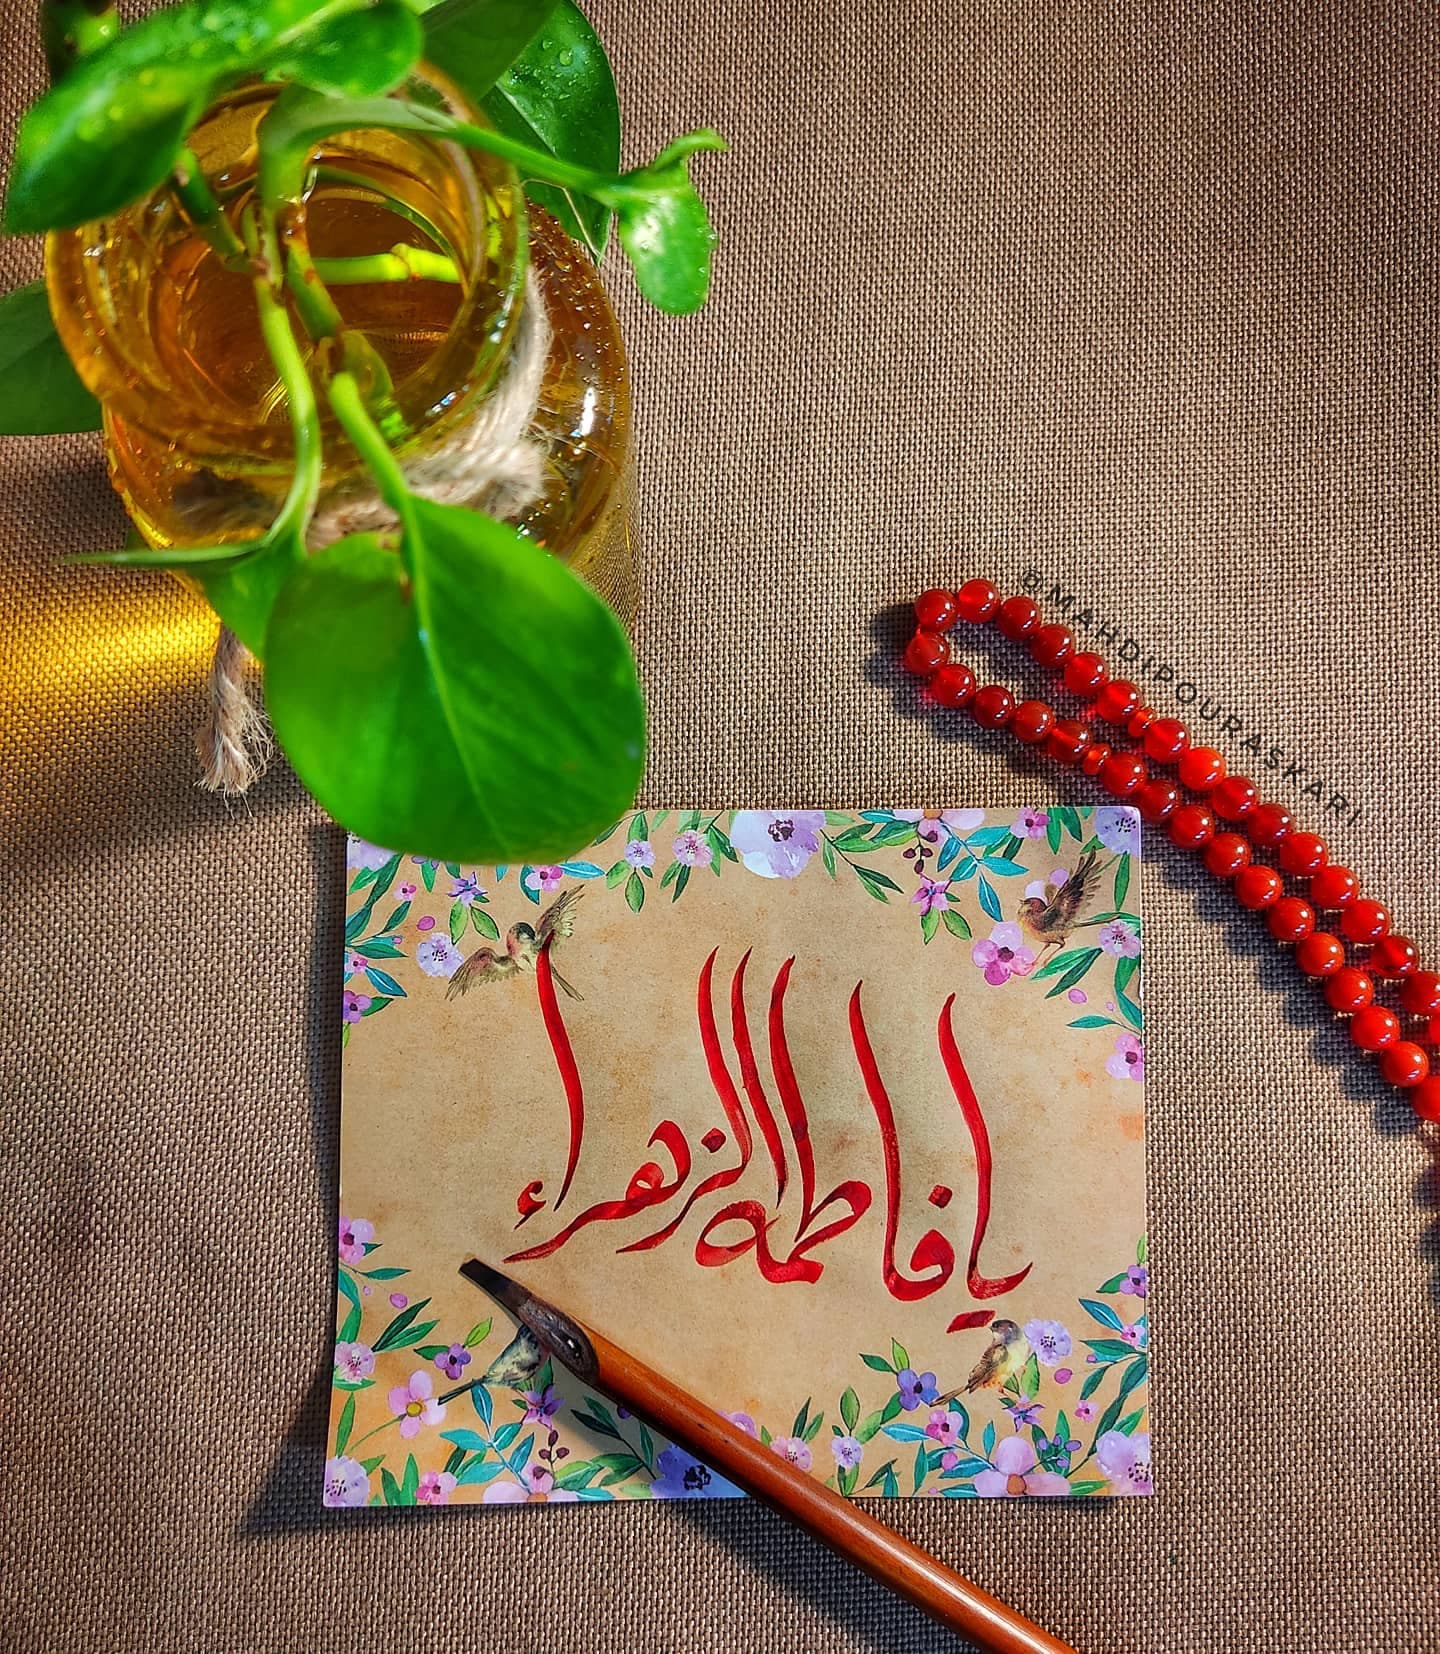 @MAHDIPOURASKARI
یا فاطمه الزهراء